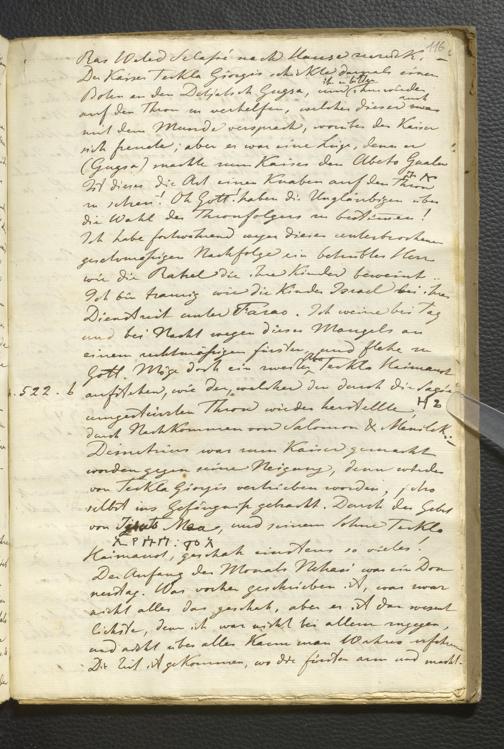 116
Ras Weled Selassé nach Hause zurück. –
Der Kaiser Teckla Giorgis schickte damals einen
Boten an den Dedjatsch Gugsa, um ihn zu bitten ihm wieder
auf den Thron zu verhelfen, welches dieser zwar auch
mit dem Munde versprach, worüber der Kaiser
sich freute; aber es war eine Lüge, denn er
(Gugsa) machte zum Kaiser den Abeto
Ist dieses die Art einen Knaben auf den Thron
zu setzen! Oh Gott! haben die Ungläubigen über
die Wahl des Thronfolgers zu bestimmen!
Ich habe fortwährend wegen dieser unterbrochenen
gesetzmäßigen Nachfolge ein betrübtes Herz
wie die Rahel die ihre Kinder beweint.
Ich bin traurig wie die Kinder Israel bei ihrer
Dienstzeit unter Farao. Ich weine bei Tag
und bei Nacht wegen dieses Mangels an
einem rechtmäßigen Fürsten, und flehe zu
Gott. Möge doch ein zweiter Teckla Haimanot
522. b aufstehen, wie der, welcher den durch die
umgestürzten Thron wieder herstellte,
durch Nachkommen von Salomon & Menilek.
Demetrius war zum Kaiser gemacht
worden gegen seine Neigung, denn
von Teckla Giorgis vertrieben worden,
selbst ins Gefängniß gebracht. Durch das Gebet
von und seinem Sohne Teckla
Haimanot, geschah einstens so vieles!
Der Anfang des Monats Nehasi war ein Don-
nerstag. Was vorher geschrieben ist, war zwar
nicht alles das geschah, aber es ist das wesent
lichste, denn ich war nicht bei allem zugegen,
und nicht über alles kann man Wahres erfahren
Die Zeit ist gekommen, wo die Fürsten arm und macht-